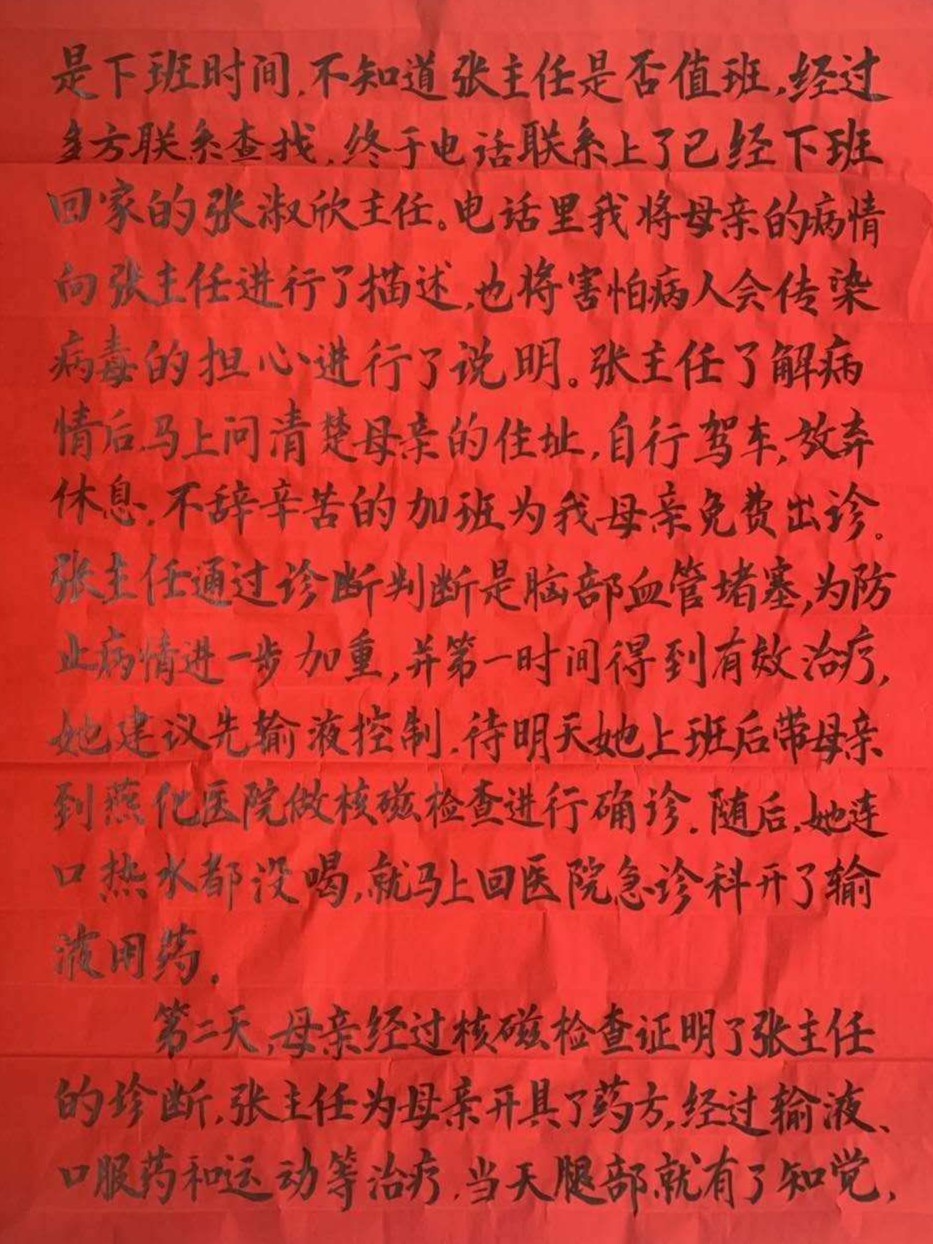 是下班时间,不知道张主任是否值班,经过
多方联系查找,终于电话联系上了已经下班
回家的张淑欣主任。电话里我将母亲的病情
向张主任进行了描述,也将害怕病人会传染
病毒的担心进行了说明。张主任了解病
情后,马上问清楚母亲的住址,自行驾车,放弃
休息,不辞辛苦的加班为我母亲免费出诊。
张主任通过诊断判断是脑部血管堵塞,为防
止病情进一步加重,并第一时间得到有效治疗,
她建议先输液控制,待明天她上班后带母亲
到燕化医院做核磁检查进行确诊.随后,她连
口热水都没喝,就马上回医院急诊科开了输
液用药.
第二天,母亲经过核磁检查证明了张主任
的诊断,张主任为母亲开具了药方,经过输液、
口服药和运动等治疗,当天腿部就有了知觉,